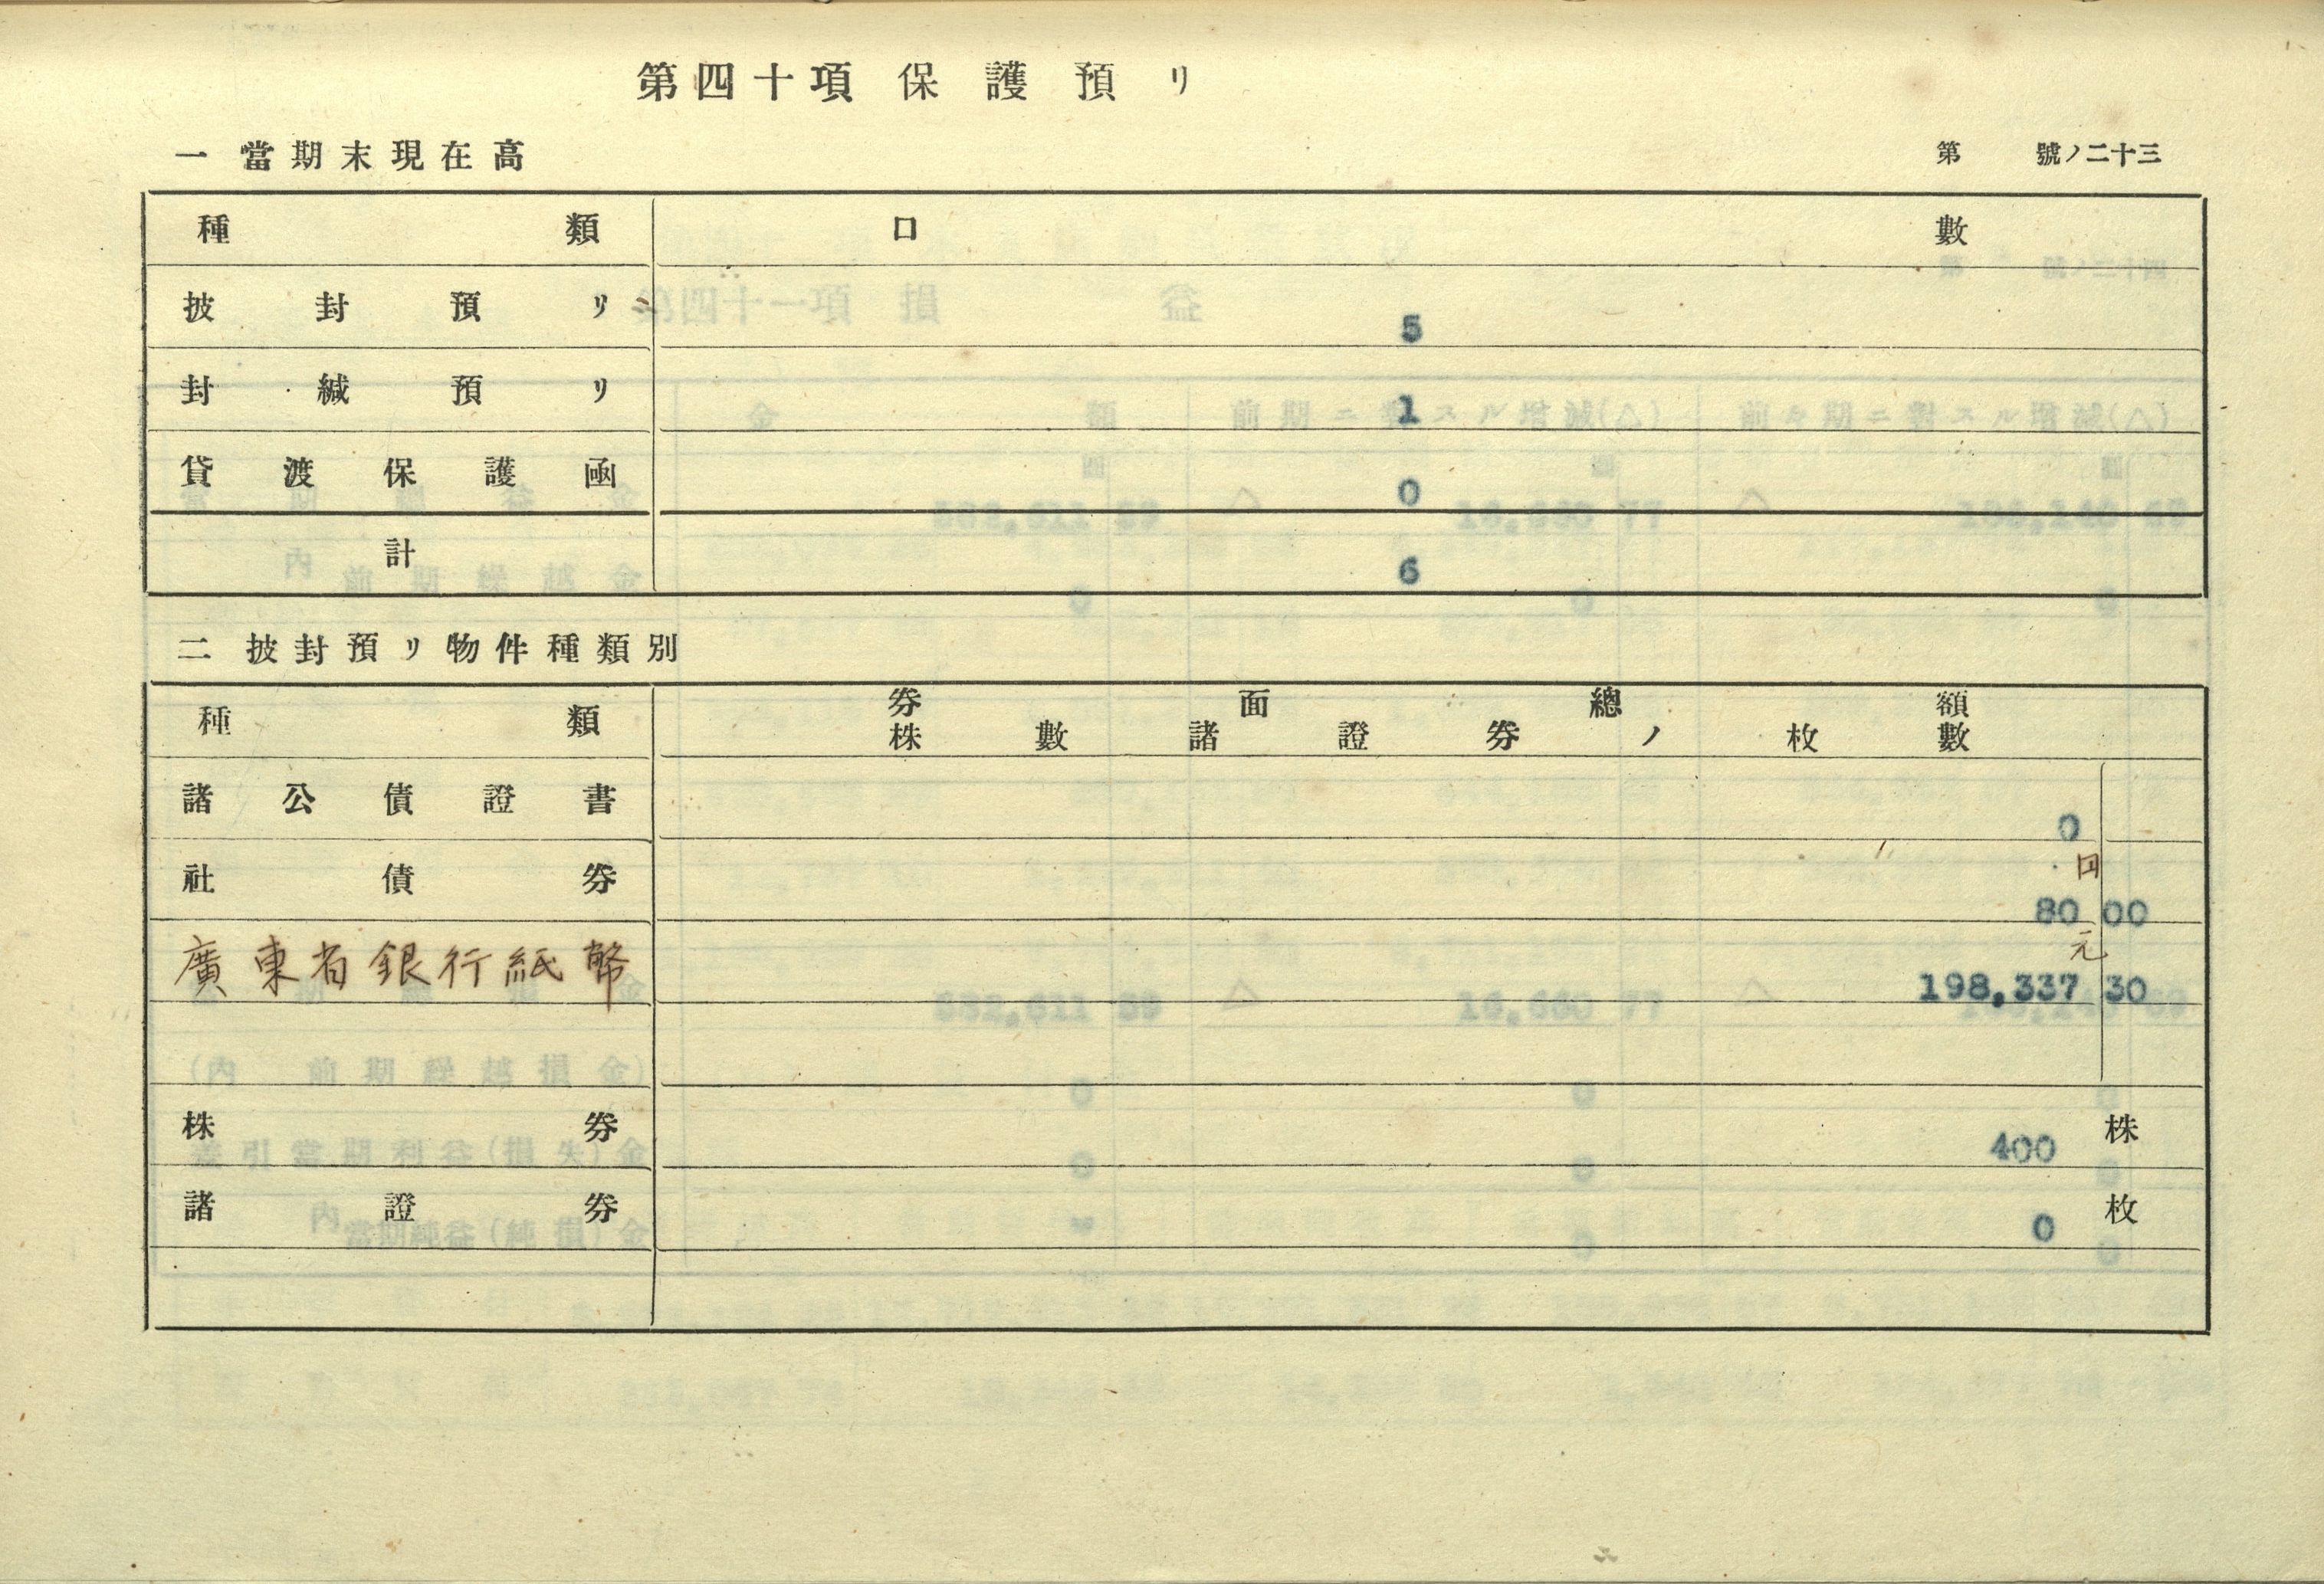 第四十項 保護預リ
一 當期末現在高
第 號ノ二十三
種類 口數
披封預リ 5
封緘預リ 1
貸渡保護凾 0
計 6
二 披封預リ物件種類別
種類 券面總額
株數諸證券ノ枚數
諸公債證書 0
社債券 円 80 00
廣東省銀行紙幣 元 198,337 30
株券 400 株
諸證券 0 枚